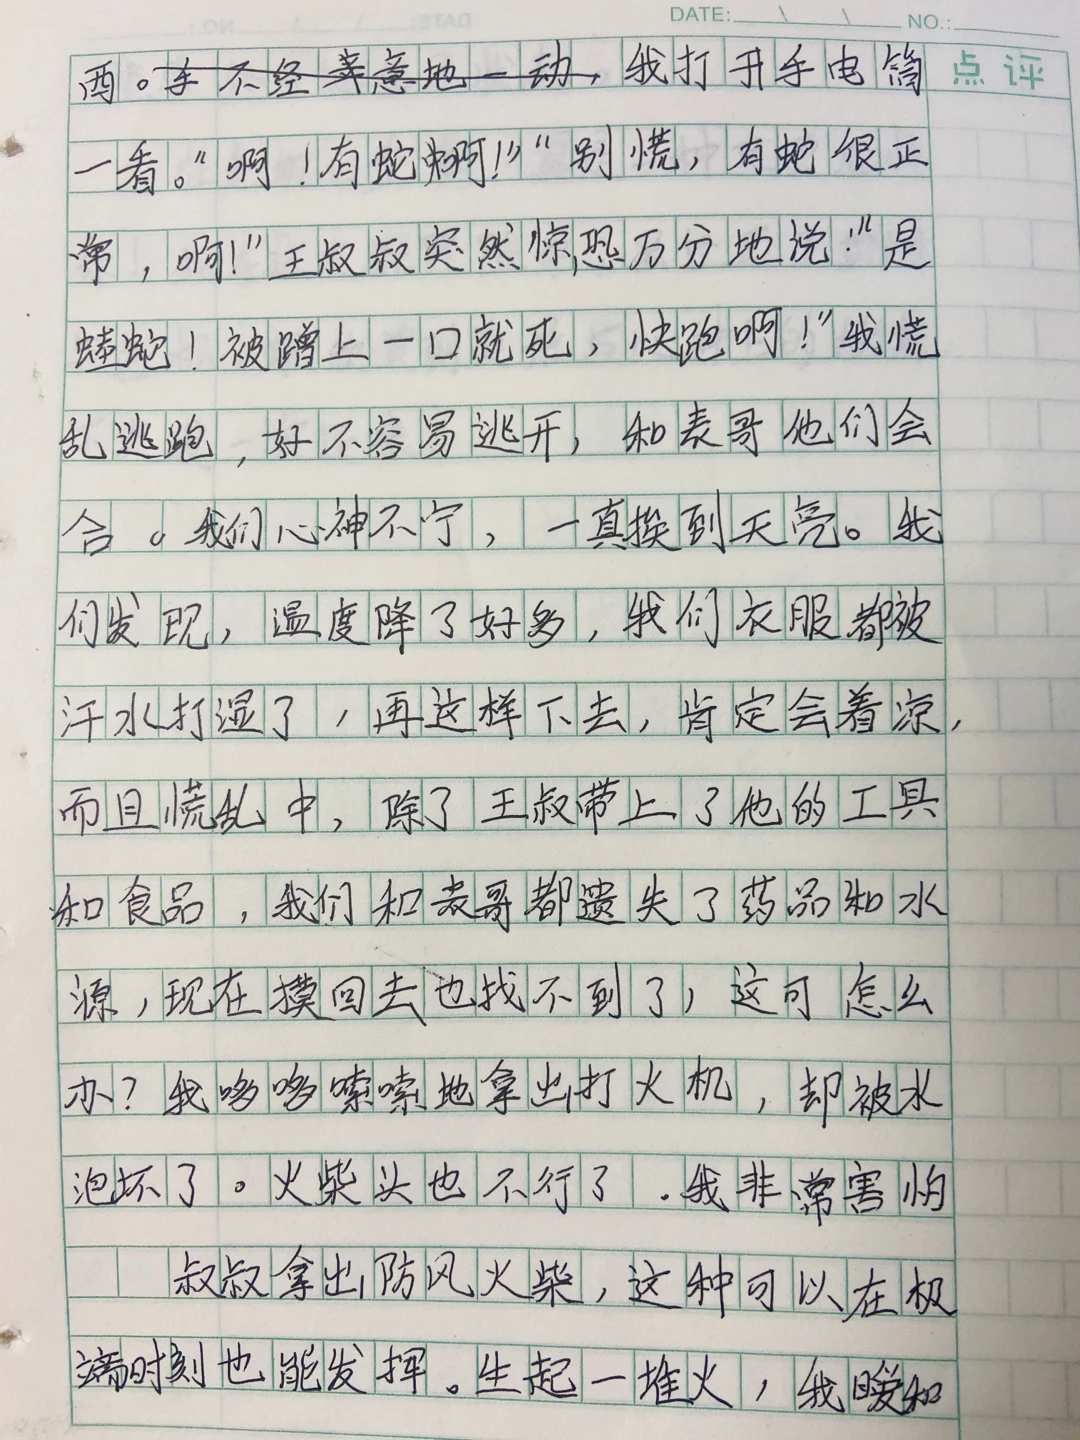 DATE: \ \ NO.:
点评
酉。手不经意地一动，我打开手电筒
一看。“啊！有蛇啊！”“别慌，有蛇很正
常，啊！”王叔叔突然惊恐万分地说：“是
蝰蛇！被蹭上一口就死，快跑啊！”我慌
乱逃跑，好不容易逃开，和表哥他们会
合。我们心神不宁，一真挨到天亮。我
们发现，温度降了好多，我们衣服都被
汗水打湿了，再这样下去，肯定会着凉，
而且慌乱中，除了王叔带上了他的工具
和食品，我们和表哥都遗失了药品和水
源，现在摸回去也找不到了，这可怎么
办？我哆哆嗦嗦地拿出打火机，却被水
泡坏了。火柴头也不行了．我非常害怕
叔叔拿出防风火柴，这种可以在极
端时刻也能发挥。生起一堆火，我暖和